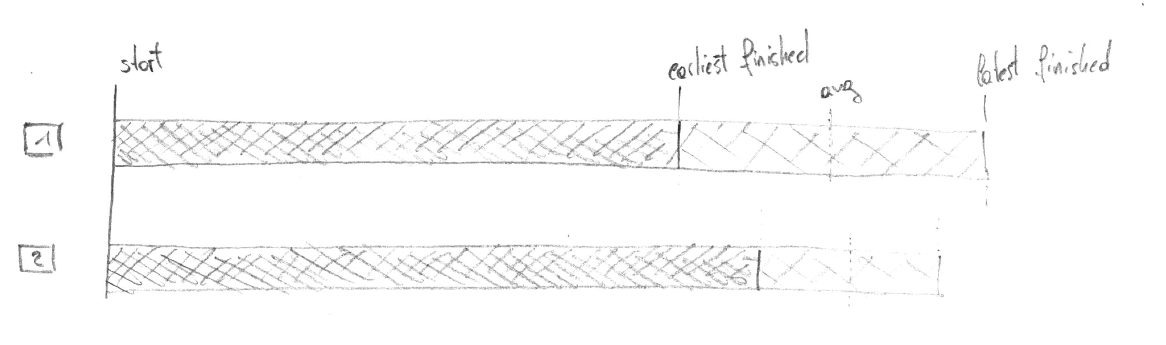 start
earliest finished
avg
latest finished
1
2